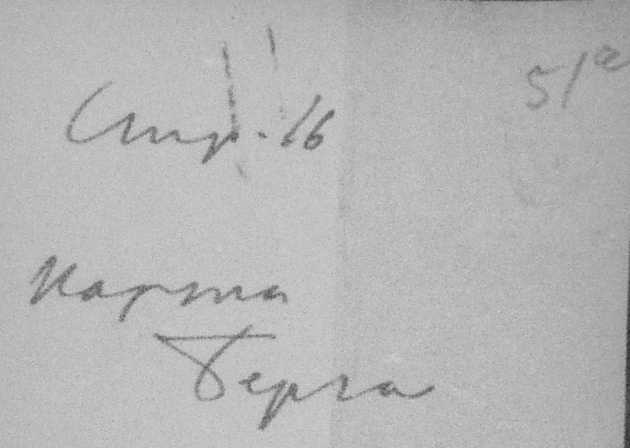 51а
Стр. 16
Карта
Берга